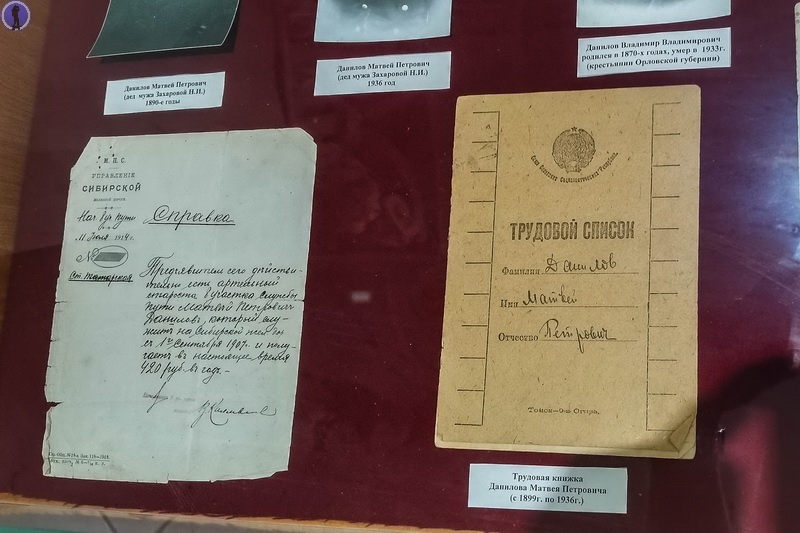 Данилов Матвей Петрович
(дед мужа Захаровой Н.И.)
1890-е годы
Данилов Матвей Петрович
(дед мужа Захаровой Н.И.)
1936 год
Данилов Владимир Владимирович
родился в 1870-х годах, умер в 1933г.
(крестьянин Орловской губернии)
М. П. С.
УПРАВЛЕНІЕ
СИБИРСКОЙ
Нач. 6 уч. Пути
11 Іюля 1914 г.
№
Ст. Татарская
Справка
Предъявитель сего действи-
тельно есть артельный
староста 6 участка службы
пути Матвѣй Петровичъ
Даниловъ, который слу-
житъ на Сибирской жел. дор.
съ 1го Сентября 1907 г. и полу-
чаетъ въ настоящее время
420 руб. въ годъ.-
ТРУДОВОЙ СПИСОК
Фамилия Данилов
Имя Матвей
Отчество Петрович
Трудовая книжка
Данилова Матвея Петровича
(с 1899г. по 1936г.)